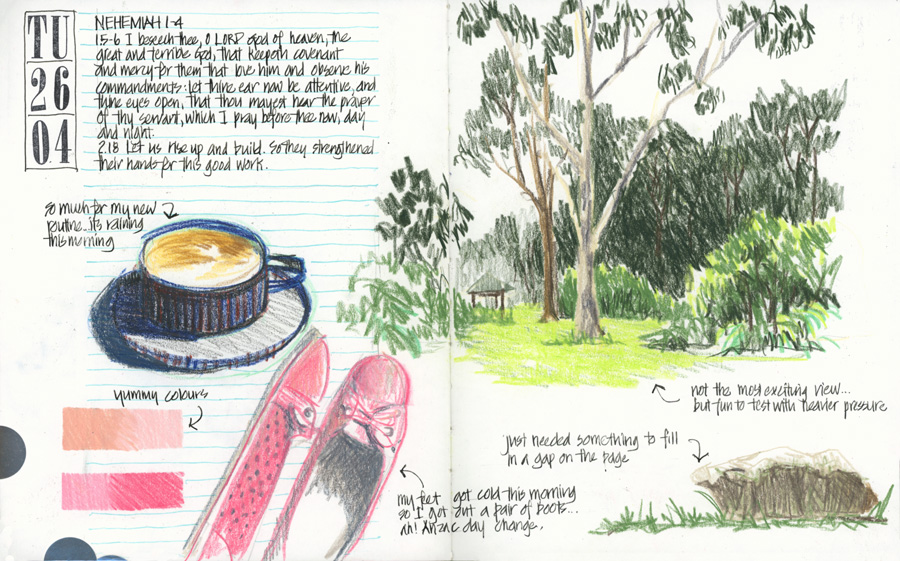 TU
26
04
NEHEMIAH 1-4
1.5-6 I beseech thee, O LORD God of heaven, the
great and terrible God, that keepeth covenant
and mercy for them that love him and observe his
commandments: let thine ear now be attentive, and
thine eyes open, that thou mayest hear the prayer
of thy servant, which I pray before thee now, day
and night.
2.18 Let us rise up and build. So they strengthened
their hands for this good work.
so much for my new
routine.. it's raining
this morning
yummy colours
not the most exciting view...
but fun to test with heavier pressure
just needed something to fill
in a gap on the page
my feet got cold this morning
so I got out a pair of boots...
ah! Anzac day change.